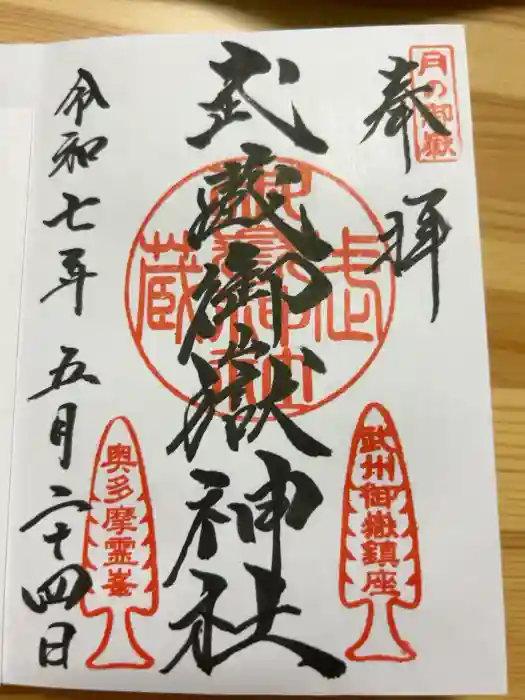 奉拝
月の御嶽
武蔵御嶽神社
武州御嶽鎮座
奥多摩霊峯
令和七年五月二十四日